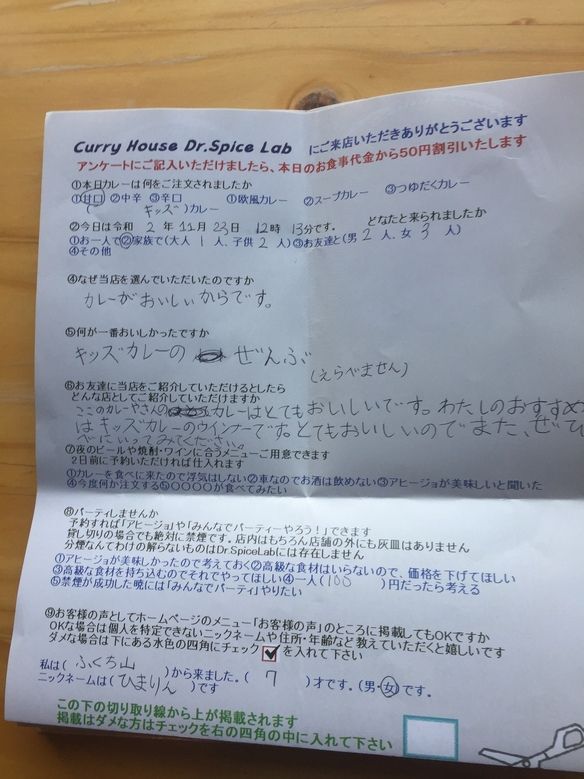 Curry House Dr.Spice Lab にご来店いただきありがとうございます
アンケートにご記入いただけましたら、本日のお食事代金から50円割引いたします
①本日カレーは何をご注文されましたか
①甘口 ②中辛 ③辛口 ①欧風カレー ②スープカレー ③つゆだくカレー
( キッズ )カレー
②今日は令和 2 年 11 月 23 日 12 時 13 分です。 どなたと来られましたか
①お一人で②家族で(大人 1 人、子供 2 人)③お友達と(男 2 人、女 3 人)
④その他
④なぜ当店を選んでいただいたのですか
カレーがおいしいからです。
⑤何が一番おいしかったですか
キッズカレーの ぜんぶ
(えらべません)
⑥お友達に当店をご紹介していただけるとしたら
どんな店としてご紹介していただけますか
ここのカレーやさんの カレーはとてもおいしいです。わたしのおすすめ
はキッズカレーのウインナーです。とてもおいしいのでまた、ぜひ
べにいってみてください。
⑦夜のビールや焼酎・ワインに合うメニューご用意できます
2日前に予約いただければ仕入れます
①カレーを食べに来たので浮気はしない②車なのでお酒は飲めない③アヒージョが美味しいと聞いた
④今度何か注文する⑤〇〇〇〇が食べてみたい
⑧パーティしませんか
予約すれば「アヒージョ」や「みんなでパーティーやろう!」できます
貸し切りの場合でも絶対に禁煙です。店内はもちろん店舗の外にも灰皿はありません
分煙なんてわけの解らないものはDr.SpiceLabには存在しません
①アヒージョが美味しかったので考えておく②高級な食材はいらないので、価格を下げてほしい
③高級な食材を持ち込むのでそれでやってほしい④一人( 100 )円だったら考える
⑤禁煙が成功した暁には「みんなでパーティ」やりたい
⑨お客様の声としてホームページのメニュー「お客様の声」のところに掲載してもOKですか
OKな場合は個人を特定できないニックネームや住所・年齢など教えていただくと嬉しいです
ダメな場合は下にある水色の四角にチェック ✓ を入れて下さい
私は( ふくち山 )から来ました。( 7 )才です。(男・女)です。
ニックネームは(ひまりん)です
この下の切り取り線から上が掲載されます
掲載はダメな方はチェックを右の四角の中に入れて下さい